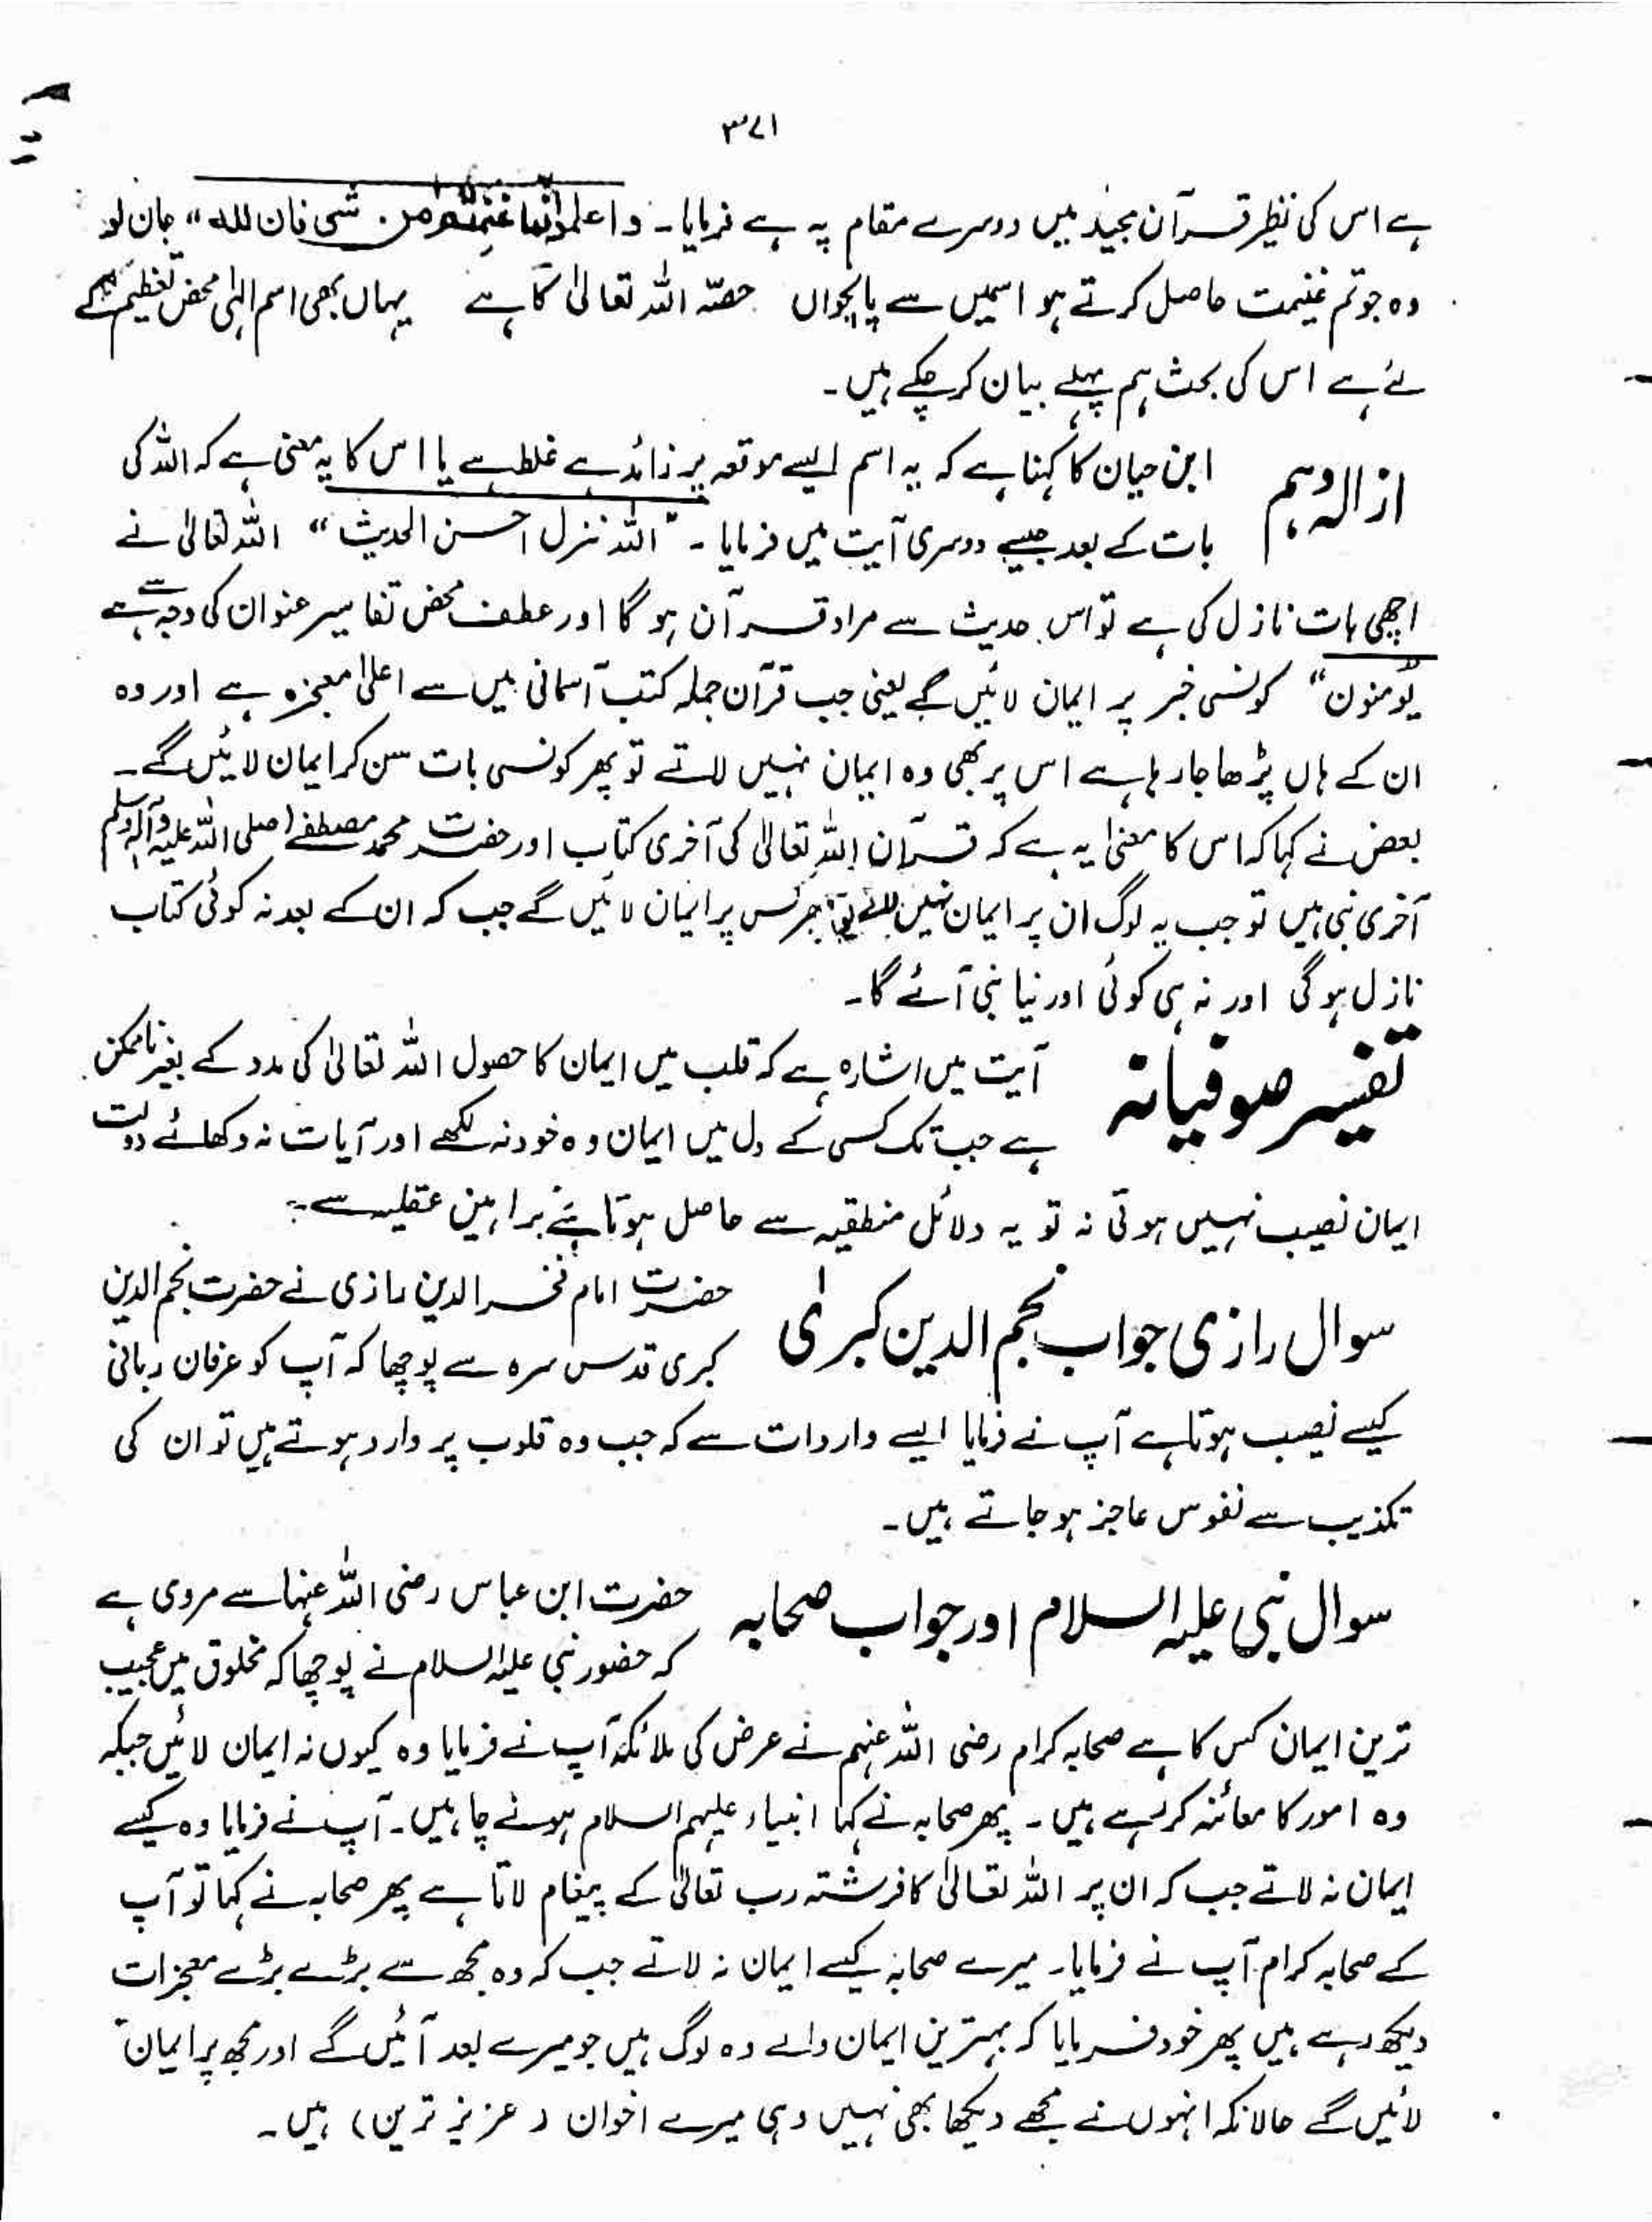 ۳۷۱
ہے اس کی نظیر قرآن مجید میں دوسرے مقام پہ ہے فرمایا۔ واعلموا انما غنمتم من شی فان للہ" جان لو
وہ جو تم غنیمت حاصل کرتے ہو اسمیں سے پانچواں حصّہ اللہ تعالیٰ کا ہے یہاں بھی اسم الہٰی محض تعظیم کے
لئے ہے اس کی بحث ہم پہلے بیان کر چکے ہیں۔
ازالہ وہم
ابن حیان کا کہنا ہے کہ یہ اسم ایسے موقعہ پر زائد ہے غلط ہے یا اس کا یہ معنیٰ ہے کہ اللہ کی
بات کے بعد جیسے دوسری آیت میں فرمایا۔ "اللہ نزل احسن الحدیث" اللہ تعالیٰ نے
اچھی بات نازل کی ہے تو اس حدیث سے مراد قرآن ہو گا اور عطف محض تفاسیر عنوان کی وجہ سے ہے
یؤمنون" کونسی خبر پر ایمان لائیں گے یعنی جب قرآن جملہ کتب آسمانی میں سے اعلیٰ معجزہ ہے اور وہ
ان کے ہاں پڑھا جا رہا ہے اس پر بھی وہ ایمان نہیں لاتے تو پھر کونسی بات سن کر ایمان لائیں گے۔
بعض نے کہا کہ اس کا معنیٰ یہ ہے کہ قرآن اللہ تعالیٰ کی آخری کتاب اور حضرت محمد مصطفےٰ (صلی اللہ علیہ وآلہ وسلم
آخری نبی ہیں تو جب یہ لوگ ان پر ایمان نہیں لائے تو پھر کس پر ایمان لائیں گے جب کہ ان کے بعد نہ کوئی کتاب
نازل ہو گی اور نہ ہی کوئی اور نیا نبی آئے گا۔
تفسیر صوفیانہ
آیت میں اشارہ ہے کہ قلب میں ایمان کا حصول اللہ تعالیٰ کی مدد کے بغیر ناممکن
ہے جب تک کسی کے دل میں ایمان وہ خود نہ لکھے اور آیات نہ دکھائے دولت
ایمان نصیب نہیں ہوتی نہ تو یہ دلائل منطقیہ سے حاصل ہوتا ہے نہ براہین عقلیہ سے۔
سوال رازی جواب نجم الدین کبریٰ
حضرت امام فخر الدین رازی نے حضرت نجم الدین
کبری قدس سرہ سے پوچھا کہ آپ کو عرفان ربانی
کیسے نصیب ہوتا ہے آپ نے فرمایا ایسے واردات سے کہ جب وہ قلوب پر وارد ہوتے ہیں تو ان کی
تکذیب سے نفوس عاجز ہو جاتے ہیں۔
سوال نبی علیہ السلام اور جواب صحابہ
حضرت ابن عباس رضی اللہ عنہا سے مروی ہے
کہ حضور نبی علیہ السلام نے پوچھا کہ مخلوق میں عجیب
ترین ایمان کس کا ہے صحابہ کرام رضی اللہ عنہم نے عرض کی ملائکہ آپ نے فرمایا وہ کیوں نہ ایمان لائیں جبکہ
وہ امور کا معائنہ کر رہے ہیں۔ پھر صحابہ نے کہا انبیاء علیہم السلام ہونے چاہیں۔ آپ نے فرمایا وہ کیسے
ایمان نہ لاتے جب کہ ان پر اللہ تعالیٰ کا فرشتہ رب تعالیٰ کے پیغام لاتا ہے پھر صحابہ نے کہا تو آپ
کے صحابہ کرام آپ نے فرمایا۔ میرے صحابہ کیسے ایمان نہ لاتے جب کہ وہ مجھ سے بڑے بڑے معجزات
دیکھ رہے ہیں پھر خود فرمایا کہ بہترین ایمان والے وہ لوگ ہیں جو میرے بعد آئیں گے اور مجھ پر ایمان
لائیں گے حالانکہ انہوں نے مجھے دیکھا بھی نہیں وہی میرے اخوان (عزیز ترین) ہیں۔